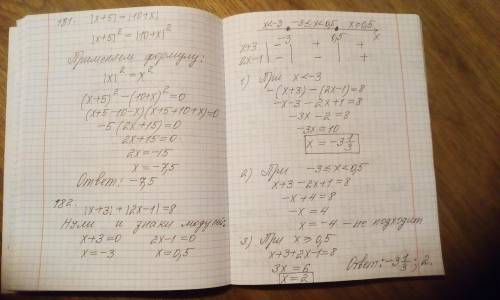 181. |x+5| = |10+x|
|x+5|² = |10+x|²
Применяем формулу:
|x|² = x²
(x+5)² − (10+x)² = 0
(x+5−10−x)(x+5+10+x)=0
−5(2x+15)=0
2x+15=0
2x=−15
x=−7,5
Ответ: −7,5
182. |x+3|+|2x−1|=8
Нули и знаки модулей:
x+3=0 2x−1=0
x=−3 x=0,5
x<−3 −3≤x<0,5 x≥0,5
−3 0,5 x
x+3 − + +
2x−1 − − +
1) При x<−3
−(x+3)−(2x−1)=8
−x−3−2x+1=8
−3x−2=8
−3x=10
x=−3 1/3
2) При −3≤x<0,5
x+3−2x+1=8
−x+4=8
−x=4
x=−4 — не подходит
3) При x≥0,5
x+3+2x−1=8
3x=6
x=2
Ответ: −3 1/3; 2.